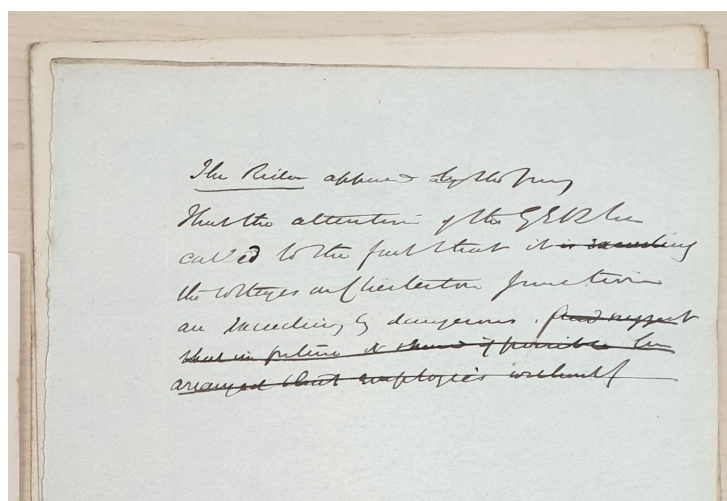 The Rider append by the Jury
That the attention of the G E R be
called to the fact that it is exceeding
the cottages at Chesterton Junction
are exceedingly dangerous. and suggest
that in future it should if possible be
arranged that employees without